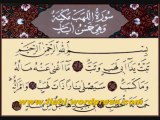 سُورَةُ اللَّهَبِ مَكِّيَّةٌ
وَهِيَ خَمْسُ آيَاتٍ
بِسْمِ اللَّهِ الرَّحْمَنِ الرَّحِيمِ
تَبَّتْ يَدَا أَبِي لَهَبٍ وَتَبَّ مَا أَغْنَى عَنْهُ مَالُهُ
وَمَا كَسَبَ سَيَصْلَى نَارًا ذَاتَ لَهَبٍ